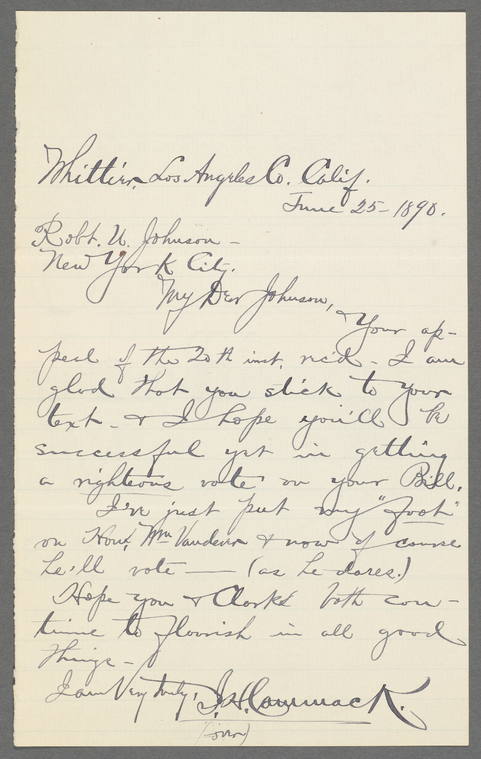 Whittier, Los Angeles Co. Calif.
June 25 - 1890.
Robt. U. Johnson -
New York City.
My Der Johnson,
Your ap-
peal of the 20th inst. rec'd - I am
glad that you stick to your
text - & I hope you'll be
successful yet in getting
a righteous vote on your Bill.
I've just put my "foot"
on Hon. Wm Vandever & now of course
he'll vote — (as he dares.)
Hope you & Clarke both con-
tinue to flourish in all good
things -
I am Very truly, J. H. Cammack.
(over)